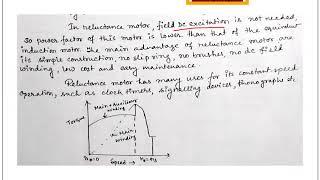 In reluctance motor, field DC excitation is not needed,
so power factor of this motor is lower than that of the equivalent
induction motor. The main advantage of reluctance motor are
its simple construction, no slip ring, no brushes, no dc field
winding, low cost and easy maintenance.
Reluctance motor has many uses for its constant speed
operation, such as clock timers, signalling devices, phonographs etc
Main + Auxiliary
winding
Torque
Main
winding
Speed →